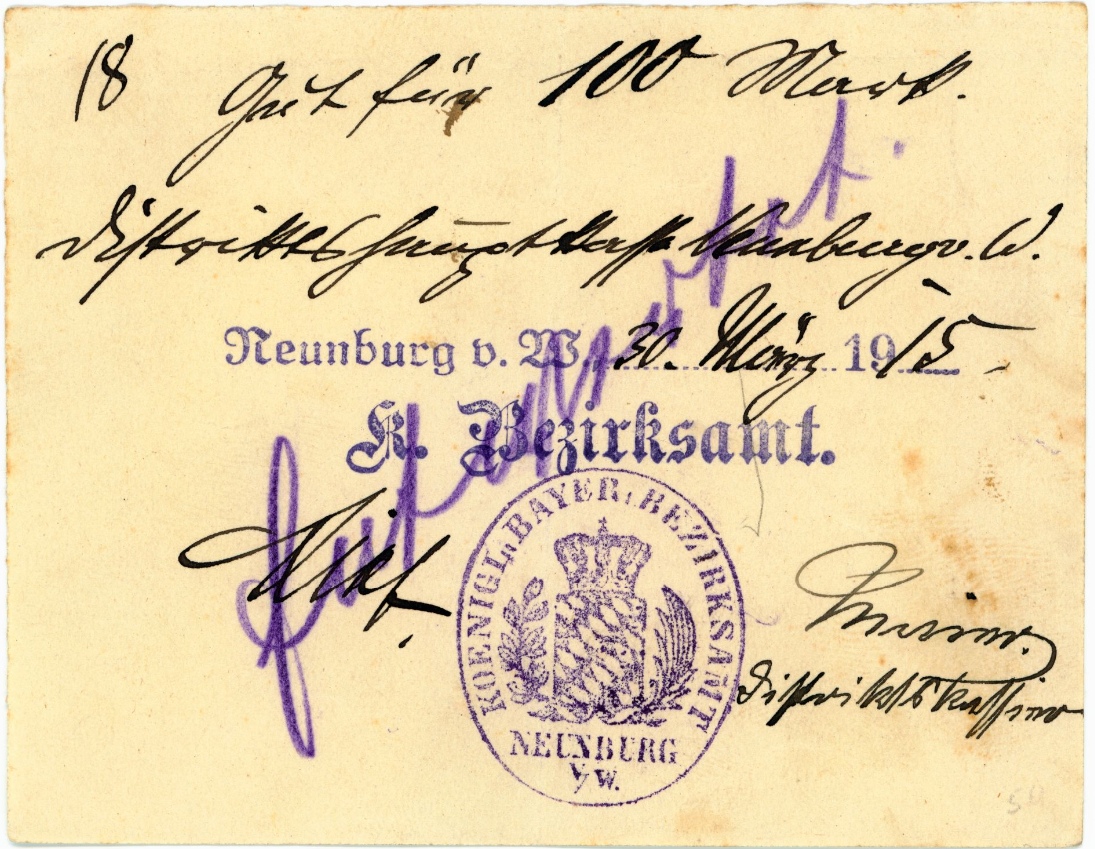 18 Gut für 100 Mark.
Distriktshauptkasse Neunburg v. W.
Neunburg v. W. 30. März 1915
K. Bezirksamt.
Entwertet.
KOENIGL. BAYER. BEZIRKSAMT
NEUNBURG
V/W.
Distriktskassier